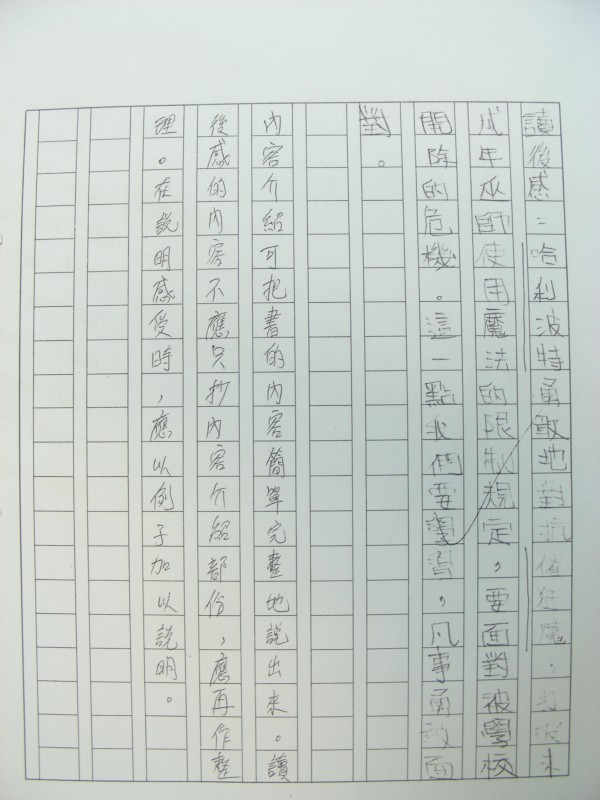 讀後感：哈利波特勇敢地對抗催狂魔，打破未
成年巫師使用魔法的限制規定，要面對被學校
開除的危機。這一點我們要學習，凡事勇敢面
對。
內容介紹可把書的內容簡單完整地說出來。讀
後感的內容不應只抄內容介紹部份，應再作整
理。在說明感受時，應以例子加以說明。